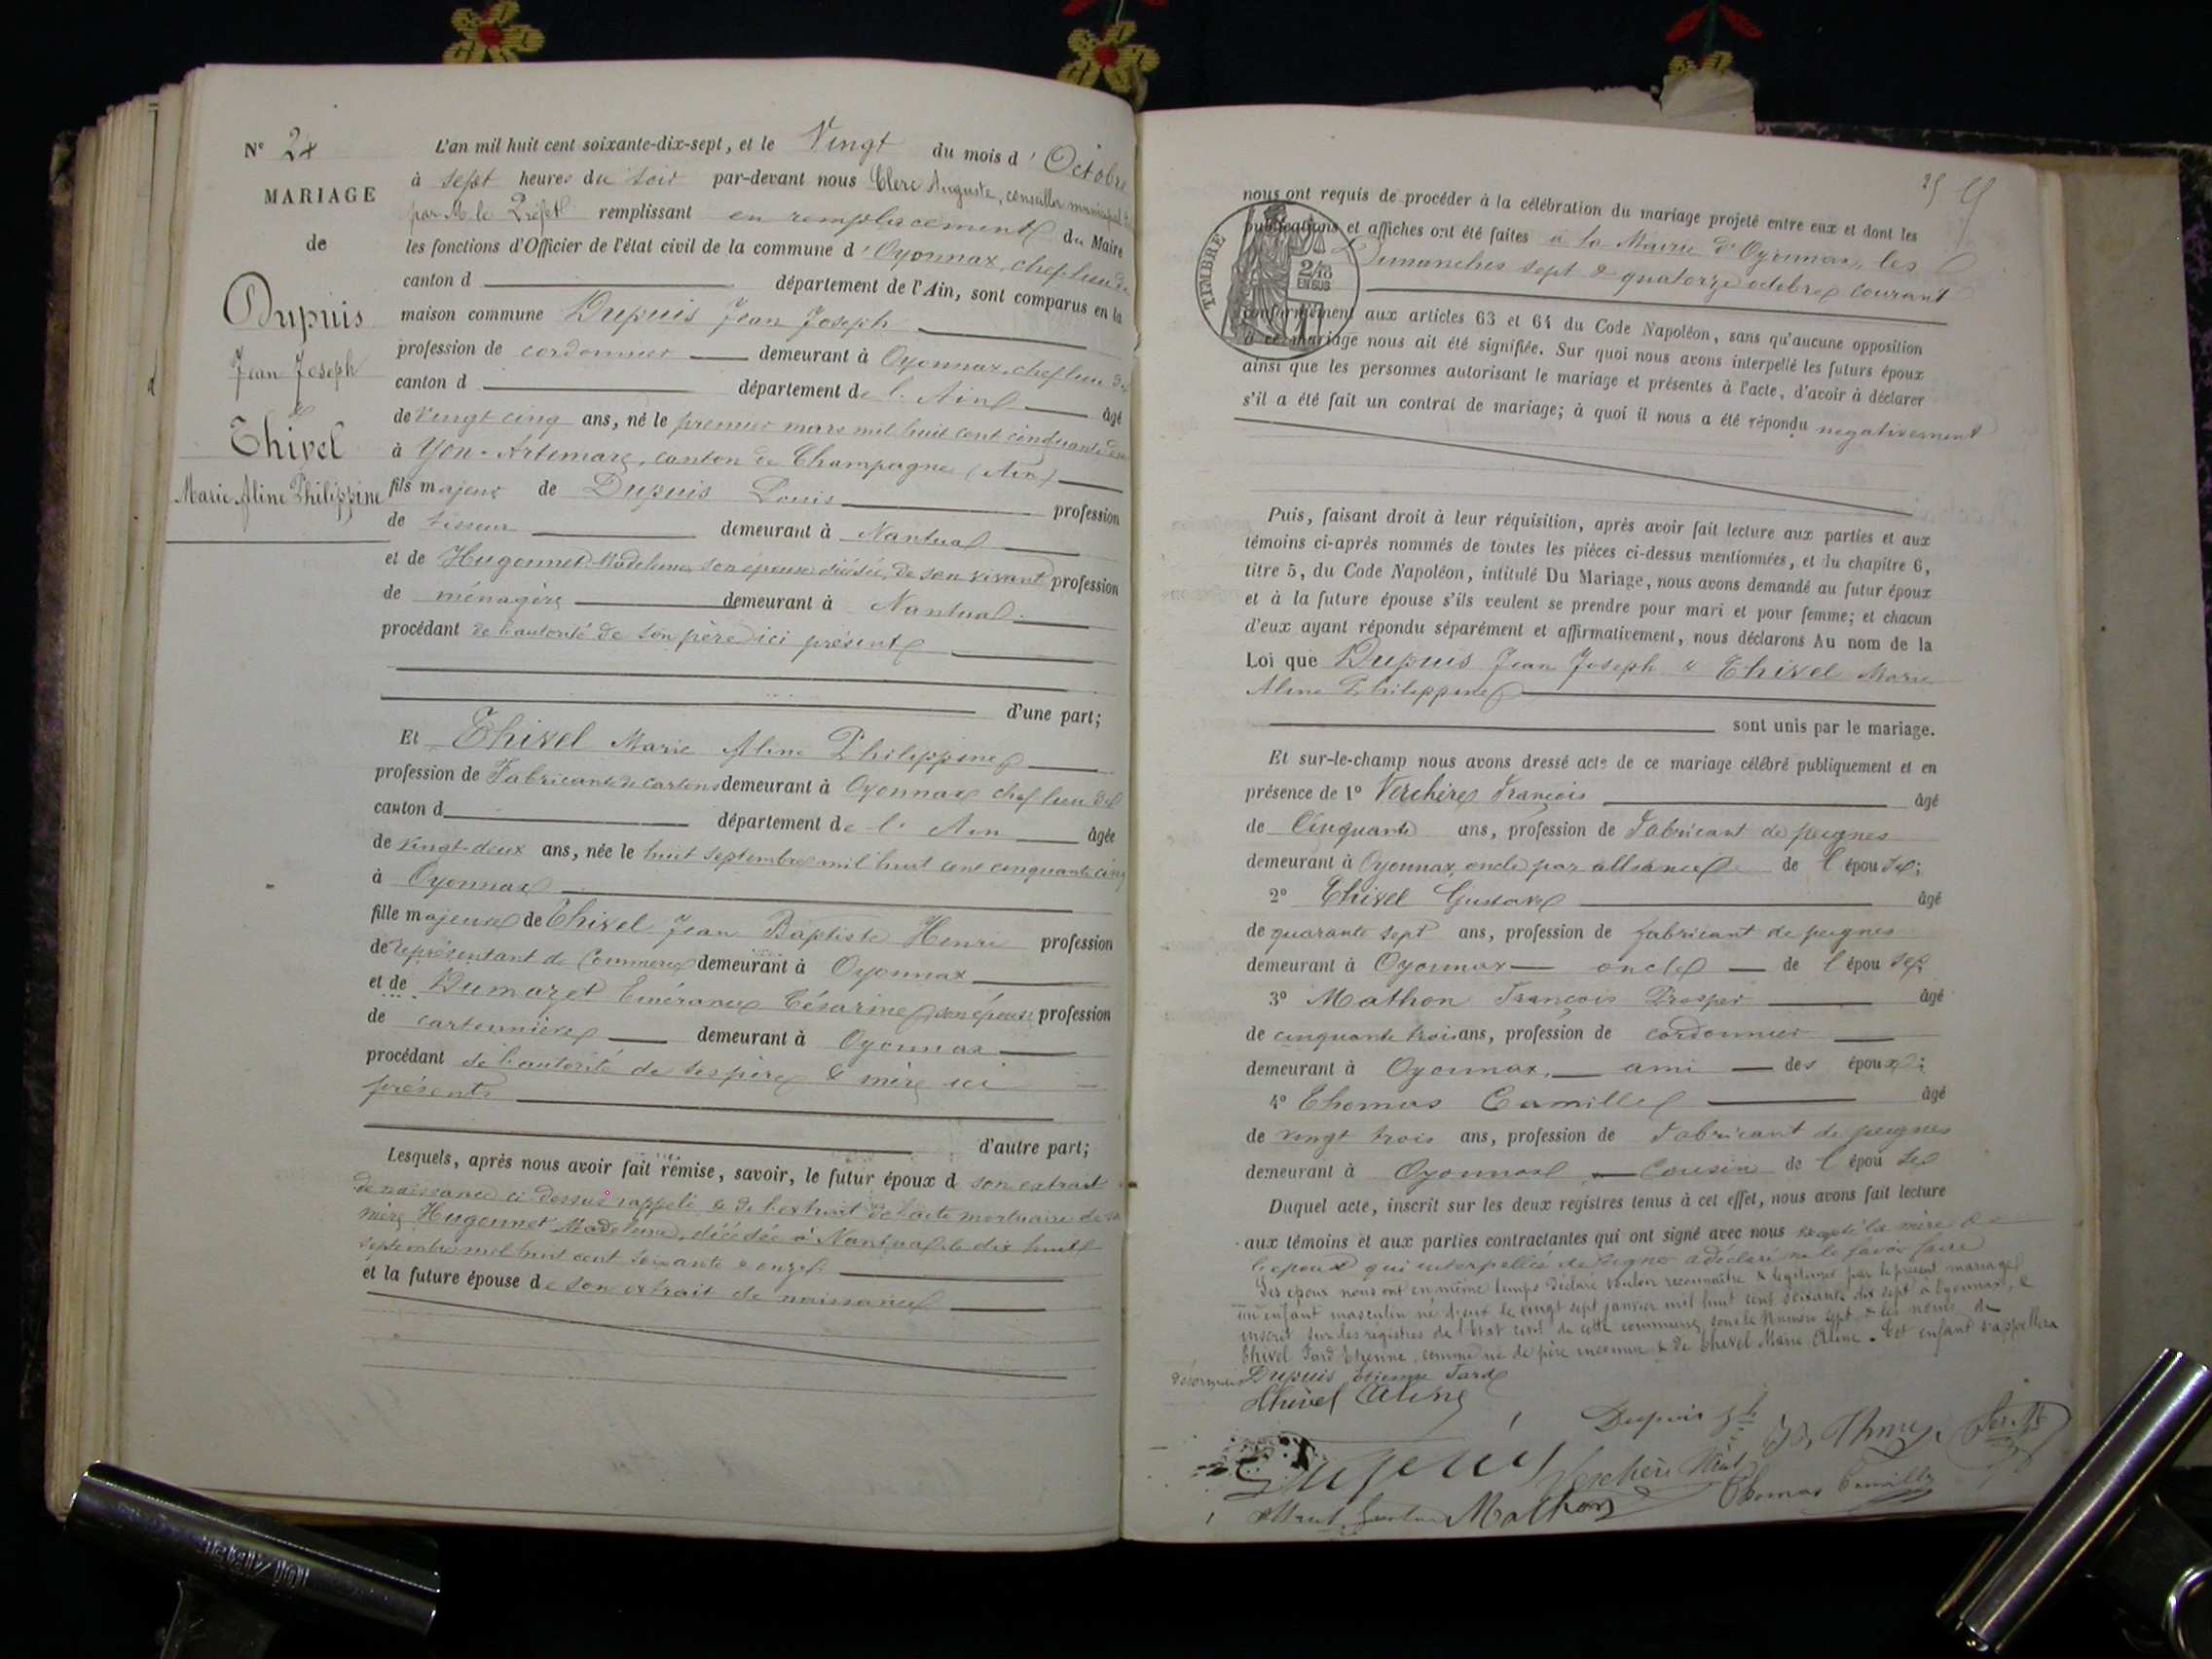 N° 24
MARIAGE
de
Dupuis
Jean Joseph
&
Thivel
Marie Aline Philippine
L'an mil huit cent soixante-dix-sept, et le Vingt du mois d'Octobre
à sept heures du soir par-devant nous Clerc Auguste, conseiller municipal
par M. le Préfet remplissant en remplacement du Maire
les fonctions d'Officier de l'état civil de la commune d'Oyonnax, chef lieu de
canton d département de l'Ain, sont comparus en la
maison commune Dupuis Jean Joseph
profession de cordonnier demeurant à Oyonnax, chef lieu de
canton d département de l'Ain âgé
de vingt cinq ans, né le premier mars mil huit cent cinquante deux
à Yon-Artemare, canton de Champagne (Ain)
fils majeur de Dupuis Louis profession
de tisseur demeurant à Nantua
et de Hugonnet Madeleine, son épouse décédée, de son vivant profession
de ménagère demeurant à Nantua
procédant de l'autorité de son père ici présent
d'une part;
Et Thivel Marie Aline Philippine
profession de Fabricante de cartons demeurant à Oyonnax chef lieu de
canton d département de l'Ain âgée
de vingt-deux ans, née le huit septembre mil huit cent cinquante cinq
à Oyonnax
fille majeure de Thivel Jean Baptiste Henri profession
de représentant de Commerce demeurant à Oyonnax
et de Dumazet Césarine, son épouse profession
de cartonnière demeurant à Oyonnax
procédant de l'autorité de ses père & mère ici
présents
d'autre part;
Lesquels, après nous avoir fait remise, savoir, le futur époux d son extrait
de naissance ci dessus rappelé & de l'extrait de l'acte mortuaire de sa
mère Hugonnet Madeleine, décédée à Nantua le dix huit
septembre mil huit cent soixante & onze
et la future épouse de son extrait de naissance
25
nous ont requis de procéder à la célébration du mariage projeté entre eux et dont les
publications et affiches ont été faites à la Mairie d'Oyonnax, les
Dimanches sept & quatorze octobre courant
TIMBRE
2/10
EN SUS
conformément aux articles 63 et 64 du Code Napoléon, sans qu'aucune opposition
à ce mariage nous ait été signifiée. Sur quoi nous avons interpellé les futurs époux
ainsi que les personnes autorisant le mariage et présentes à l'acte, d'avoir à déclarer
s'il a été fait un contrat de mariage; à quoi il nous a été répondu negativement
Puis, faisant droit à leur réquisition, après avoir fait lecture aux parties et aux
témoins ci-après nommés de toutes les pièces ci-dessus mentionnées, et du chapitre 6,
titre 5, du Code Napoléon, intitulé Du Mariage, nous avons demandé au futur époux
et à la future épouse s'ils veulent se prendre pour mari et pour femme; et chacun
d'eux ayant répondu séparément et affirmativement, nous déclarons Au nom de la
Loi que Dupuis Jean Joseph & Thivel Marie
Aline Philippine
sont unis par le mariage.
Et sur-le-champ nous avons dressé acte de ce mariage célébré publiquement et en
présence de 1° Verchère François âgé
de Cinquante ans, profession de Fabricant de peignes
demeurant à Oyonnax, oncle par alliance de l'épouse;
2° Thivel Gustave âgé
de quarante sept ans, profession de fabricant de peignes
demeurant à Oyonnax oncle de l'épouse
3° Mathon François Prosper âgé
de cinquante trois ans, profession de cordonnier
demeurant à Oyonnax, ami des époux;
4° Thomas Camille âgé
de vingt trois ans, profession de Fabricant de peignes
demeurant à Oyonnax Cousin de l'épouse
Duquel acte, inscrit sur les deux registres tenus à cet effet, nous avons fait lecture
aux témoins et aux parties contractantes qui ont signé avec nous excepté la mère de
l'epoux qui interpellée de signer a déclaré ne le savoir faire
Les époux nous ont en même temps déclaré vouloir reconnaître & légitimer par le présent mariage
un enfant masculin né d'eux le vingt sept janvier mil huit cent soixante dix sept à Oyonnax, &
inscrit sur les registres de l'Etat civil de cette commune sous le Numéro sept & les noms de
Thivel Jard Etienne, comme né de père inconnu & de Thivel Marie Aline. Cet enfant s'appellera
désormais Dupuis Etienne Jard
Thivel Aline
Dupuis
Dupuis
Verchère
Mathon
Thomas Camille